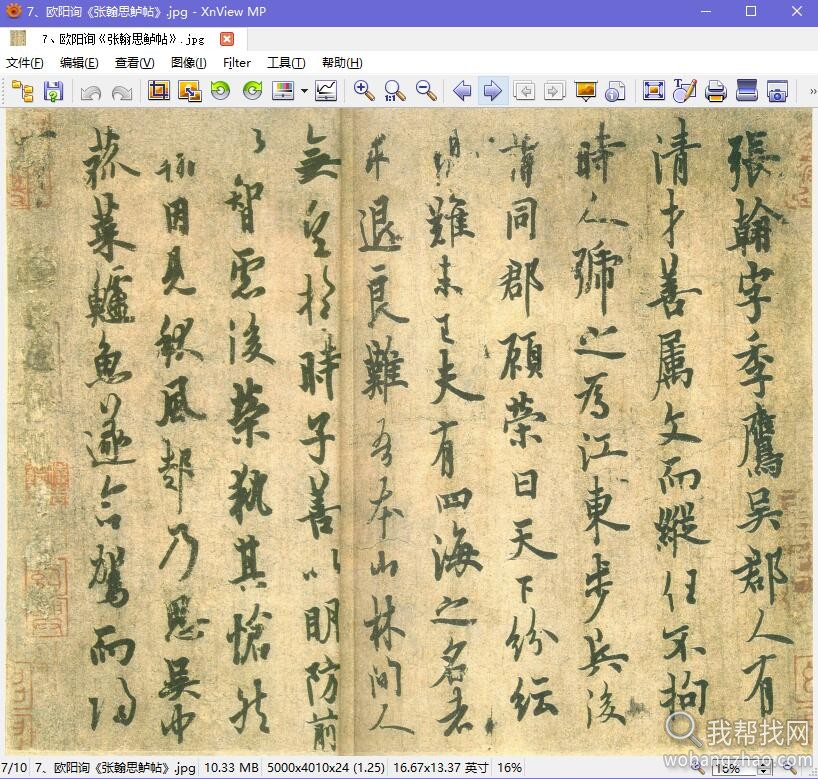 7、欧阳询《张翰思鲈帖》.jpg - XnView MP
7、欧阳询《张翰思鲈帖》.jpg
文件(F) 编辑(E) 查看(V) 图像(I) Filter 工具(T) 帮助(H)
1:1
張翰字季鷹吳郡人有
清才善属文而縱任不拘
時人號之為江東步兵後
謂同郡顧榮曰天下紛紜
難未已夫有四海之名者
求退良難吾本山林間人
無望於時子善以明防前
以智慮後榮執其愴然
翰因見秋風起乃思吳中
菰菜鱸魚遂命駕而歸
我帮找网
wobangzhao.com
7/10 7、欧阳询《张翰思鲈帖》.jpg 10.33 MB 5000x4010x24 (1.25) 16.67x13.37 英寸 16%
16%